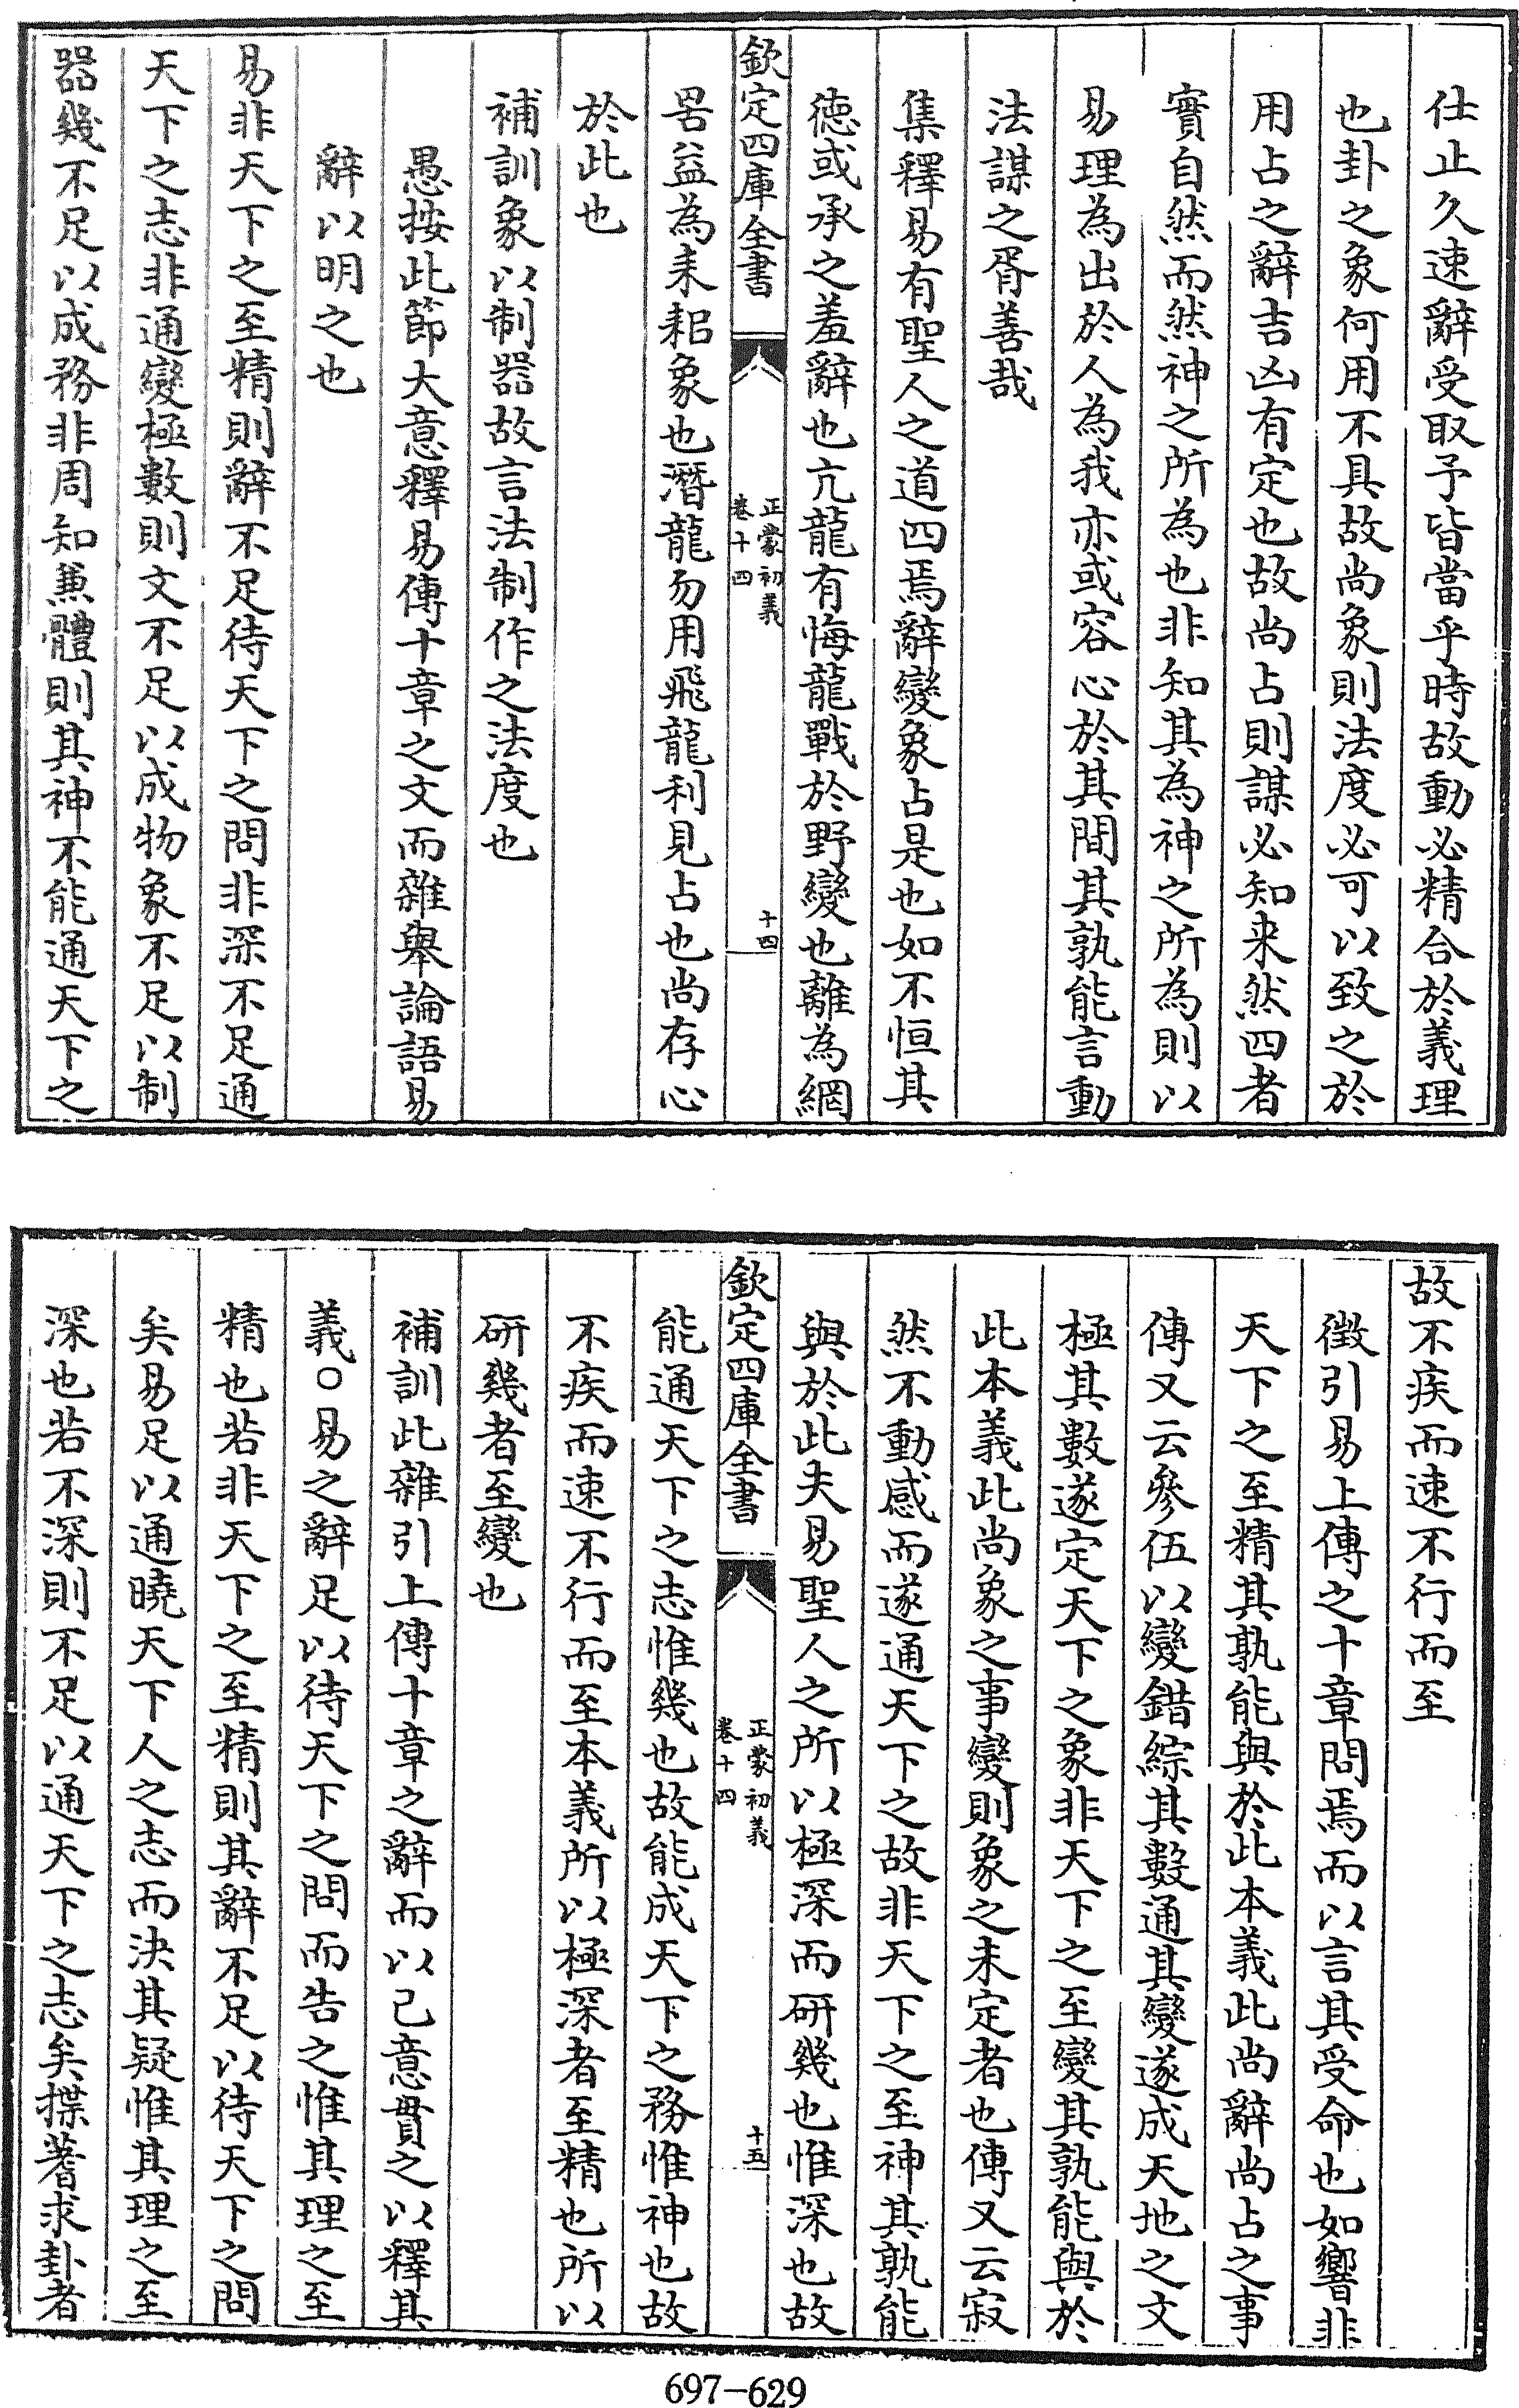 仕止久速辭受取予皆當乎時故動必精合於義理
也卦之象何用不具故尚象則法度必可以致之於
用占之辭吉凶有定也故尚占則謀必知来然四者
實自然而然神之所為也非知其為神之所為則以
易理為出於人為我亦或容心於其間其孰能言動
法謀之胥善哉
集釋易有聖人之道四焉辭變象占是也如不恒其
徳或承之羞辭也亢龍有悔龍戰於野變也離為網
欽定四庫全書
正蒙初義
卷十四
十四
罟益為耒耜象也潛龍勿用飛龍利見占也尚存心
於此也
補訓象以制器故言法制作之法度也
愚按此節大意釋易傳十章之文而雜舉論語易
辭以明之也
易非天下之至精則辭不足待天下之問非深不足通
天下之志非通變極數則文不足以成物象不足以制
器幾不足以成務非周知兼體則其神不能通天下之
故不疾而速不行而至
徴引易上傳之十章問焉而以言其受命也如響非
天下之至精其孰能與於此本義此尚辭尚占之事
傳又云參伍以變錯綜其數通其變遂成天地之文
極其數遂定天下之象非天下之至變其孰能與於
此本義此尚象之事變則象之未定者也傳又云寂
然不動感而遂通天下之故非天下之至神其孰能
與於此夫易聖人之所以極深而研幾也惟深也故
欽定四庫全書
正蒙初義
卷十四
十五
能通天下之志惟幾也故能成天下之務惟神也故
不疾而速不行而至本義所以極深者至精也所以
研幾者至變也
補訓此雜引上傳十章之辭而以己意貫之以釋其
義○易之辭足以待天下之問而告之惟其理之至
精也若非天下之至精則其辭不足以待天下之問
矣易足以通曉天下人之志而決其疑惟其理之至
深也若不深則不足以通天下之志矣揲蓍求卦者
697-629